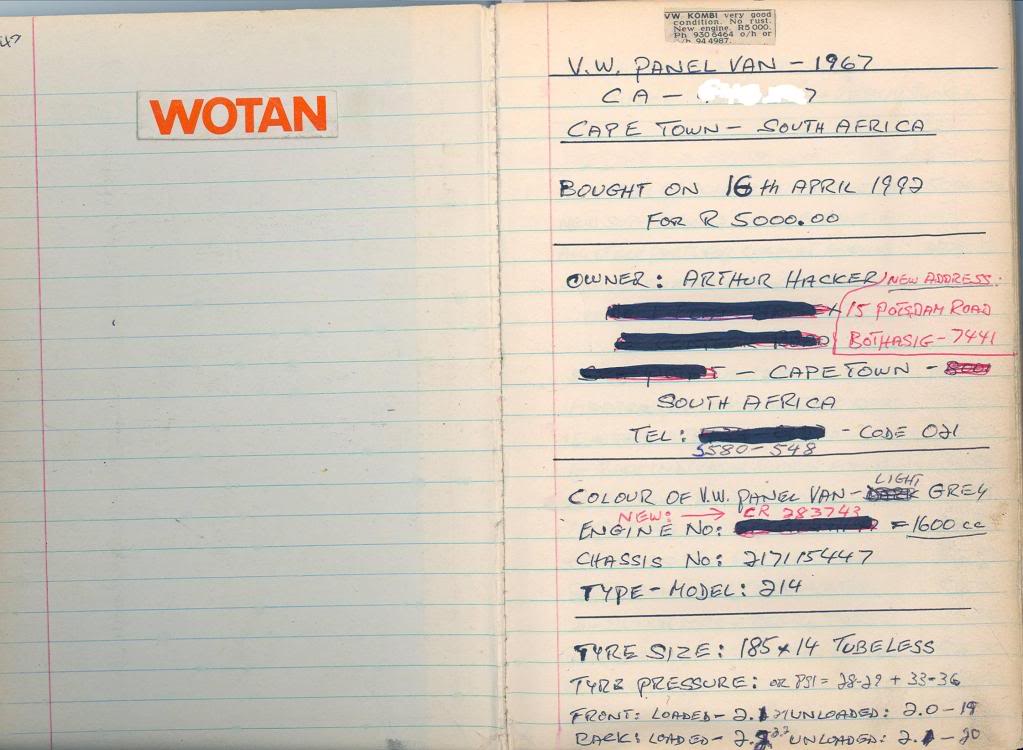 WOTAN
VW KOMBI very good
condition. No rust.
New engine. R5 000.
Ph 930 6464 o/h or
94 4987.
V.W. PANEL VAN - 1967
CA - 7
CAPE TOWN - SOUTH AFRICA
BOUGHT ON 16th APRIL 1992
FOR R 5000.00
OWNER: ARTHUR HACKER
NEW ADDRESS:
15 POTSDAM ROAD
BOTHASIG - 7441
- CAPE TOWN -
SOUTH AFRICA
TEL: - CODE 021
5580-548
COLOUR OF V.W. PANEL VAN - LIGHT GREY
NEW: → CR 283743
ENGINE No: = 1600 cc
CHASSIS No: 217115447
TYPE - MODEL: 214
TYRE SIZE: 185 x 14 TUBELESS
TYRE PRESSURE: OR PSI = 28-29 + 33-36
FRONT: LOADED - 2.1 UNLOADED: 2.0 - 19
BACK: LOADED - UNLOADED: - 20